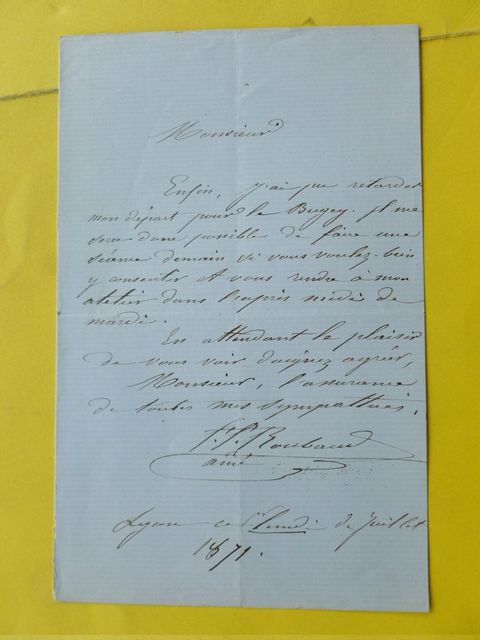 Monsieur
Enfin, j'ai pu retarder
mon départ pour le Bugey. Il me
sera donc possible de faire une
séance demain si vous voulez bien
y consentir et vous rendre à mon
atelier dans l'après midi de
mardi.
En attendant le plaisir
de vous voir daignez agréer,
Monsieur, l'assurance
de toutes mes sympathies.
F. Roubaud
aîné
Lyon ce lundi de Juillet
1871.